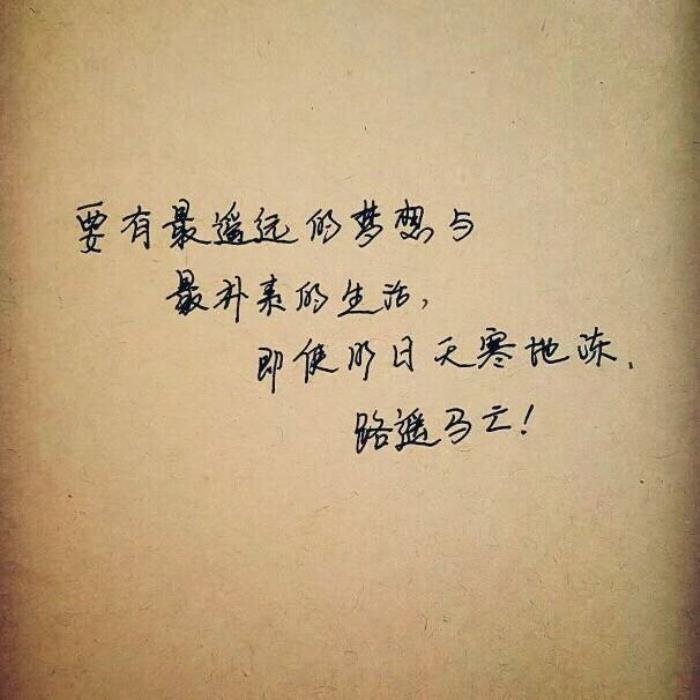 要有最遥远的梦想与
最朴素的生活,
即使明日天寒地冻,
路遥马亡!